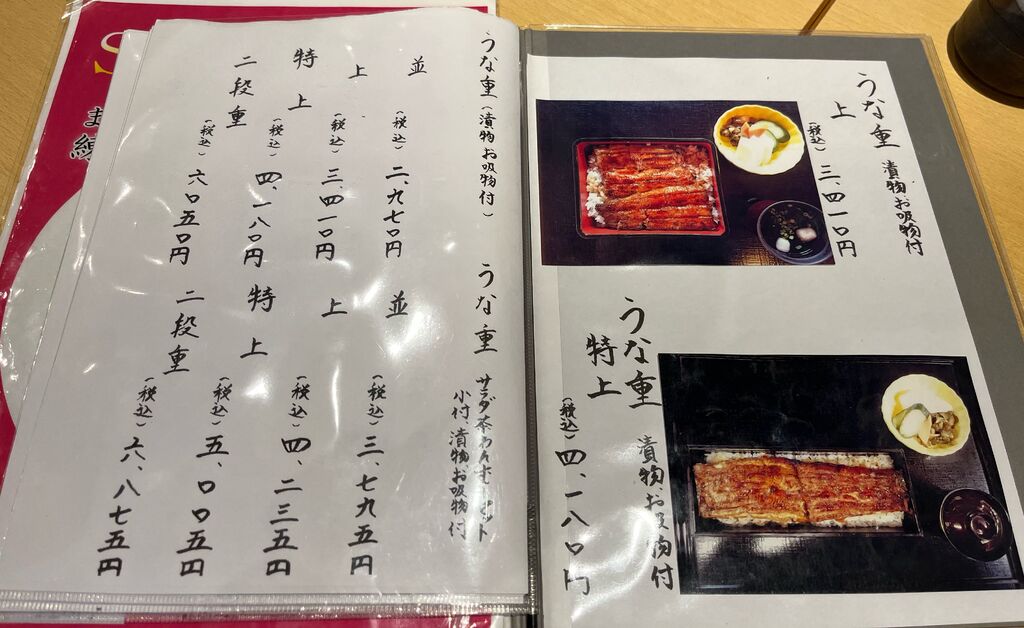 うな重(漬物お吸物付)
並 (税込) 二、九七〇円
上 (税込) 三、四一〇円
特上 (税込) 四、一八〇円
二段重 (税込) 六〇五〇円
うな重 サラダ茶わんむしセット
小付漬物お吸物付
並 (税込) 三、七九五円
上 (税込) 四、二三五円
特上 (税込) 五、〇〇五円
二段重 (税込) 六、八七五円
うな重 漬物お吸物付
上 (税込) 三、四一〇円
うな重 漬物お吸物付
特上 (税込) 四、一八〇円